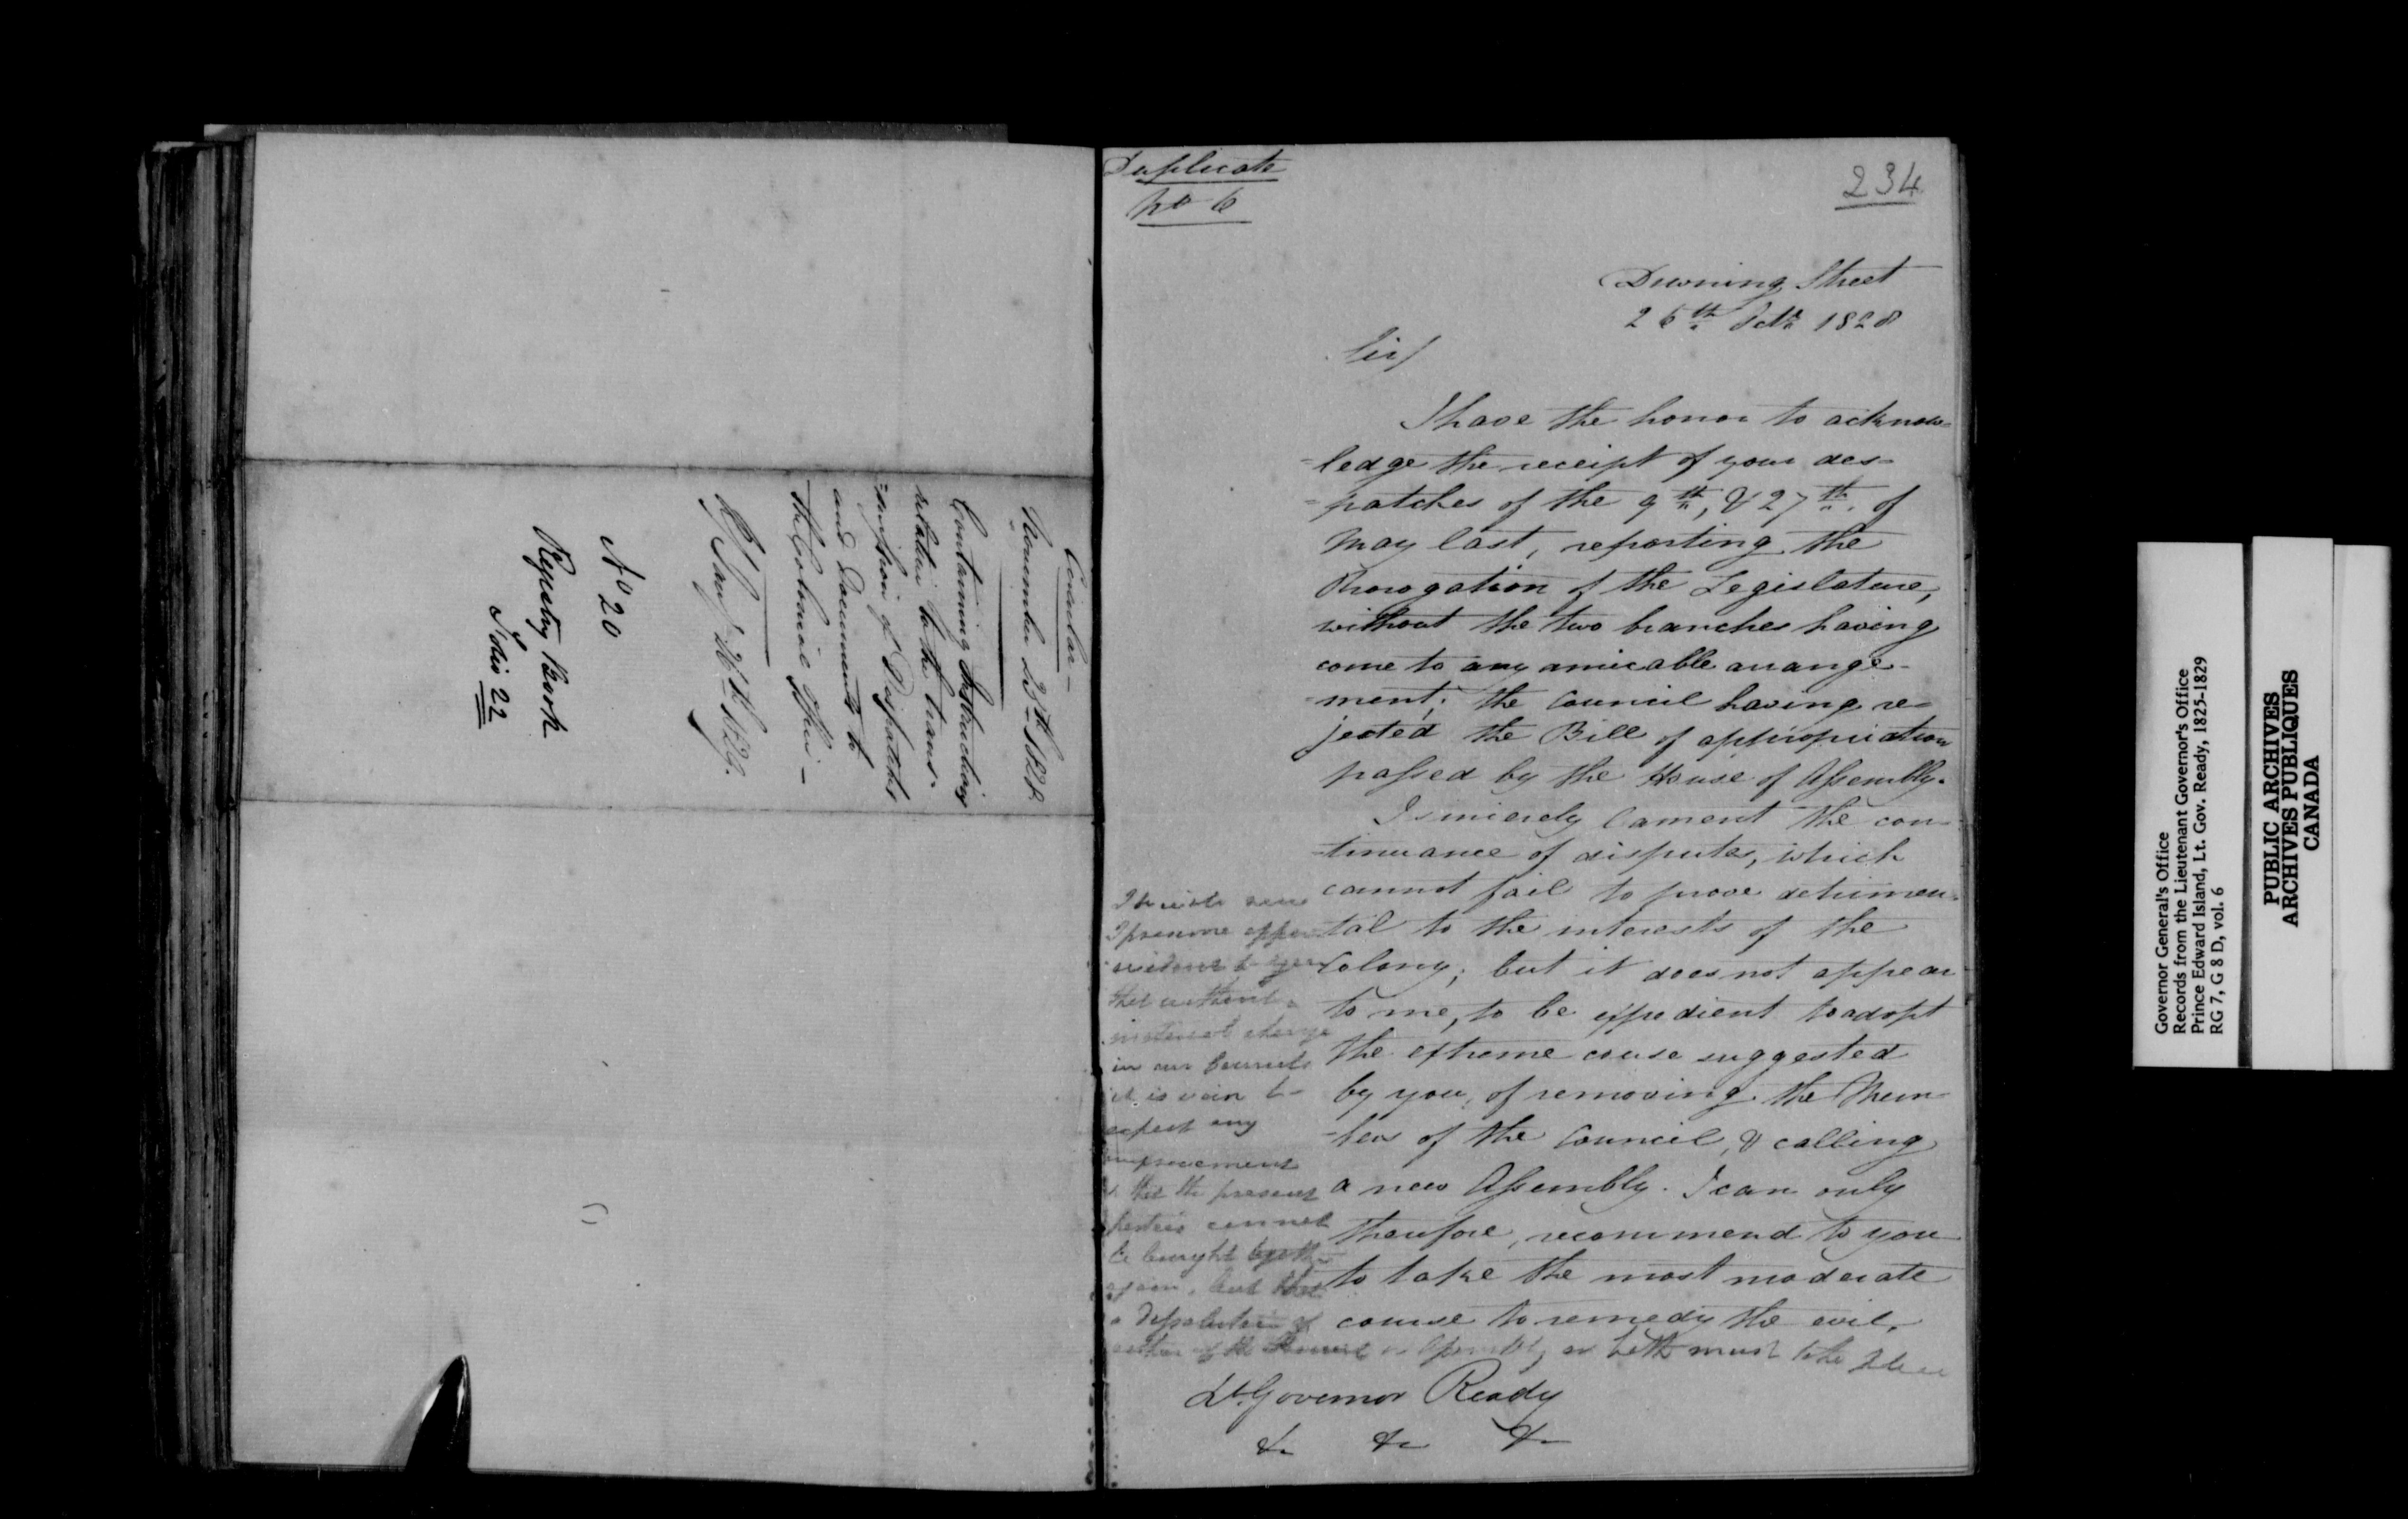 Circular –
November 25th 1828
Containing Instructions
relative to the trans-
=mission of Despatches
and Documents to
the Colonial Office –
No 20
Registry Book
Folio 22
Duplicate
No 6
234
Downing Street
26th Octr 1828
Sir/
I have the honor to acknow=
=ledge the receipt of your des=
=patches of the 9th, & 27th of
May last, reporting the
Prorogation of the Legislature,
without the two branches having
come to any amicable arrange-
-ment; the Council having re=
jected the Bill of appropriation
passed by the House of Assembly.
I sincerely lament the con-
-tinuance of disputes, which
cannot fail to prove detrimen=
tal to the interests of the
Colony; but it does not appear
to me, to be expedient to adopt
the extreme couse suggested
by you, of removing the Mem-
-bers of the Council, & calling
a new Assembly. I can only
therefore, recommend to you
to take the most moderate
course to remedy the evil,
I presume
to you
that without
material change
in our Councils
it is vain to
expect any
improvement
that the present
parties cannot
be brought together
again, but that
a Dissolution of
either of the Council or Assembly or both must take place
Lt. Governor Ready
&c &c &c
Governor General's Office
Records from the Lieutenant Governor's Office
Prince Edward Island, Lt. Gov. Ready, 1825-1829
RG 7, G 8 D, vol. 6
PUBLIC ARCHIVES
ARCHIVES PUBLIQUES
CANADA